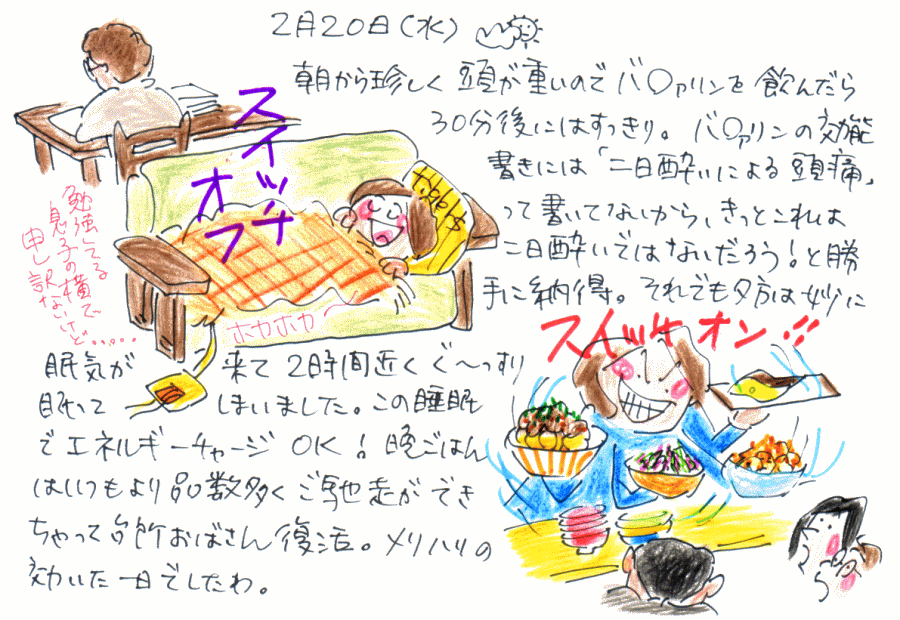 2月20日(水)
朝から珍しく頭が重いのでバ〇ァリンを飲んだら
30分後にはすっきり。バ〇ァリンの効能
書きには「二日酔いによる頭痛」
って書いてないから、きっとこれは
二日酔いではないだろう!と勝
手に納得。それでも夕方は妙に
眠気が来て2時間近くぐ〜っすり
眠ってしまいました。この睡眠
でエネルギーチャージOK!晩ごはん
はいつもより品数多くご馳走ができ
ちゃって台所おばさん復活。メリハリの
効いた一日でしたわ。
スイッチ
オフ
勉強してる
息子の横で
申し訳ないけど……
ホカホカ
スイッチオン!!